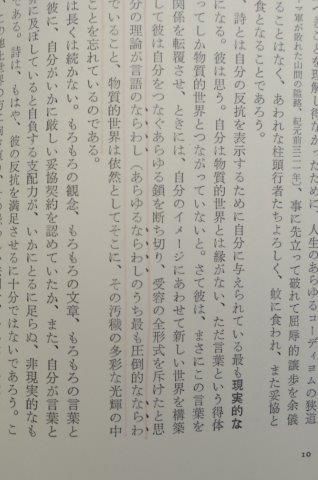 きことを理解し得なかったために、人生のあらゆるコーディヨムの狭道
マ軍が敗れた山間の隘路。紀元前三二一年）、事に先立って破れて屈辱的譲歩を余儀
ることはなく、あわれな柱頭行者たちよろしく、蚊に食われ、また妥協と
食となることであろう。
、詩とは自分の反抗を表示するために自分に与えられている最も現実的な
になる。彼は思う。自分は物質的世界とは縁がない、ただ言葉という得体
ってしか物質的世界とつながっていないと。さて彼は、まさにこの言葉を
関係を転覆させ、ときには、自分のイメージにあわせて新しい世界を構築
して彼は自分をつなぐあらゆる鎖を断ち切り、受容の全形式を斥けたと思
分の理論が言語のならわし（あらゆるならわしのうち最も圧倒的なならわ
でいること、物質的世界は依然としてそこに、その汚穢の多彩な光輝の中
ことを忘れているのである。
は長くは続かない。もろもろの観念、もろもろの文章、もろもろの言葉と
彼に、自分がいかに厳しい妥協契約を認めていたか、また、自分が言葉と
界に及ぼしていると自負する支配力が、いかにとるに足らぬ、非現実的なも
である。詩は、もはや、彼の反抗を満足させるに十分ではないであろう。こ
10